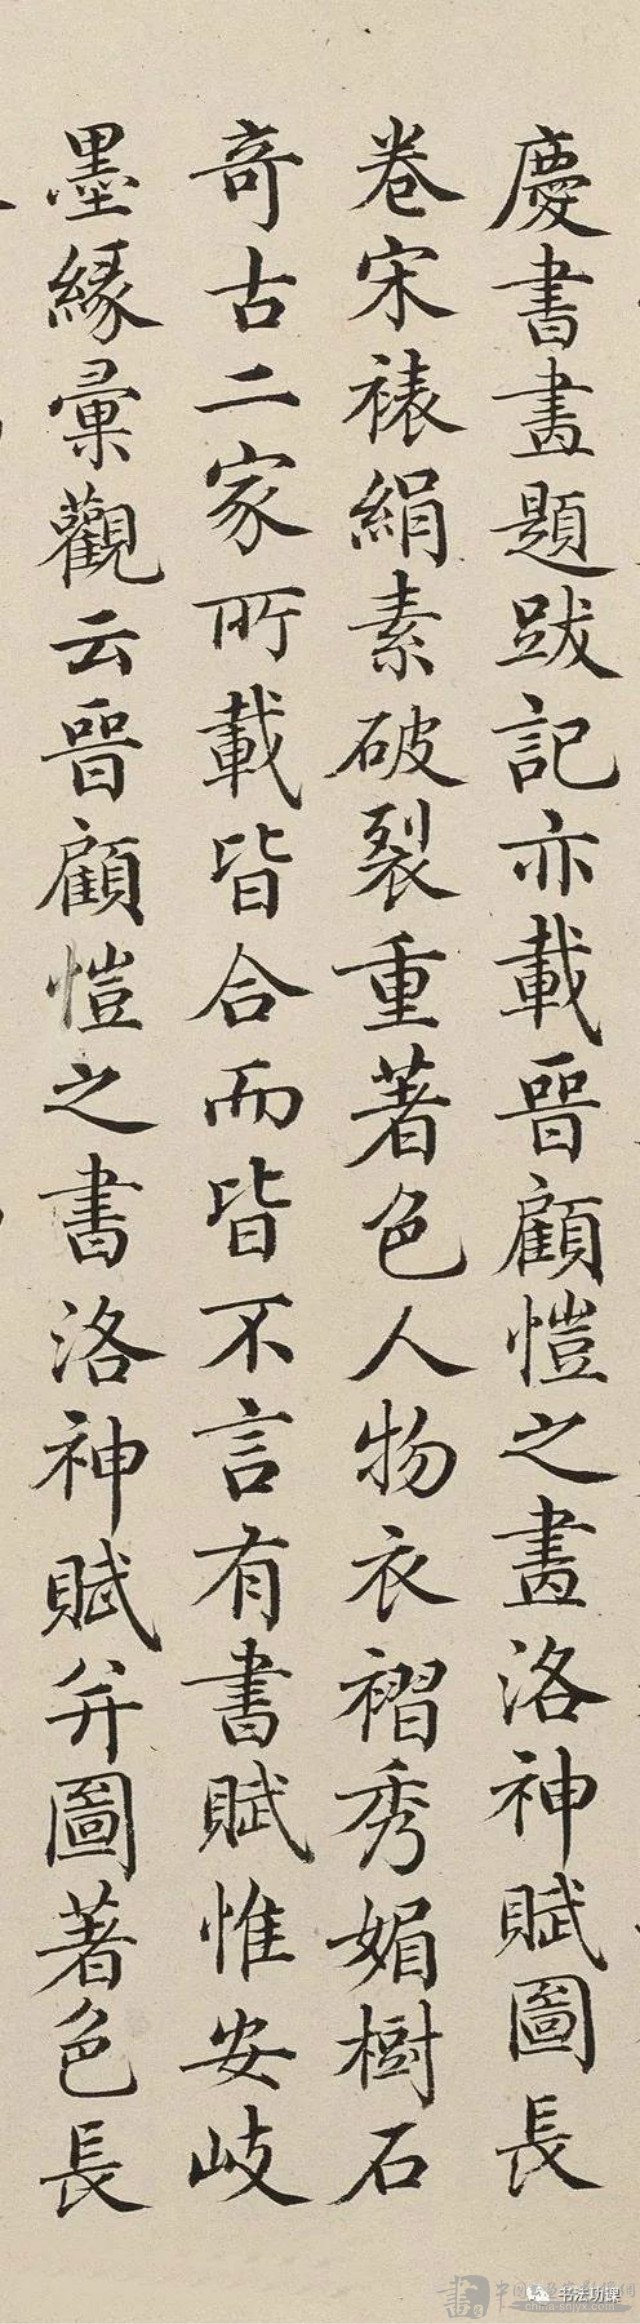 慶書畫題跋記亦載晉顧愷之畫洛神賦圖長
卷宋裱絹素破裂重著色人物衣褶秀媚樹石
奇古二家所載皆合而皆不言有書賦惟安歧
墨緣彙觀云晉顧愷之書洛神賦并圖著色長
书法功课
china-shlyx.com